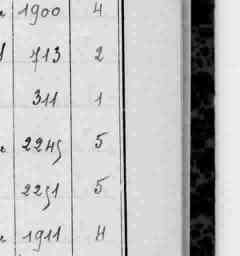 1900 4
713 2
311 1
2245 5
2251 5
1911 4